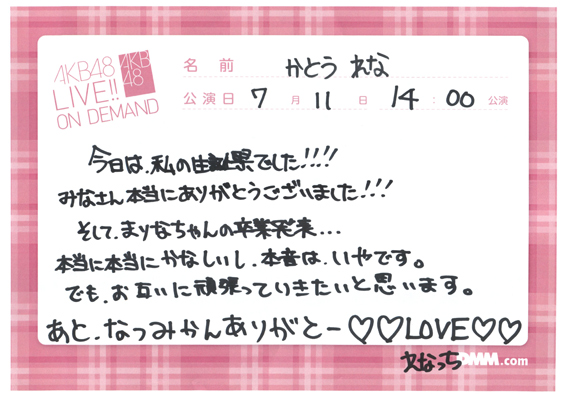 AKB48
LIVE!!
ON DEMAND
AKB
48
名前 かとう れな
公演日 7月 11日 14:00 公演
今日は、私の生誕祭でした!!!!
みなさん本当にありがとうございました!!!
そして、まりなちゃんの卒業発表...
本当に本当にかなしいし、本音は、いやです。
でも、お互いに頑張っていきたいと思います。
あと、なつみかんありがとー♡♡LOVE♡♡
れなっち
DMM.com